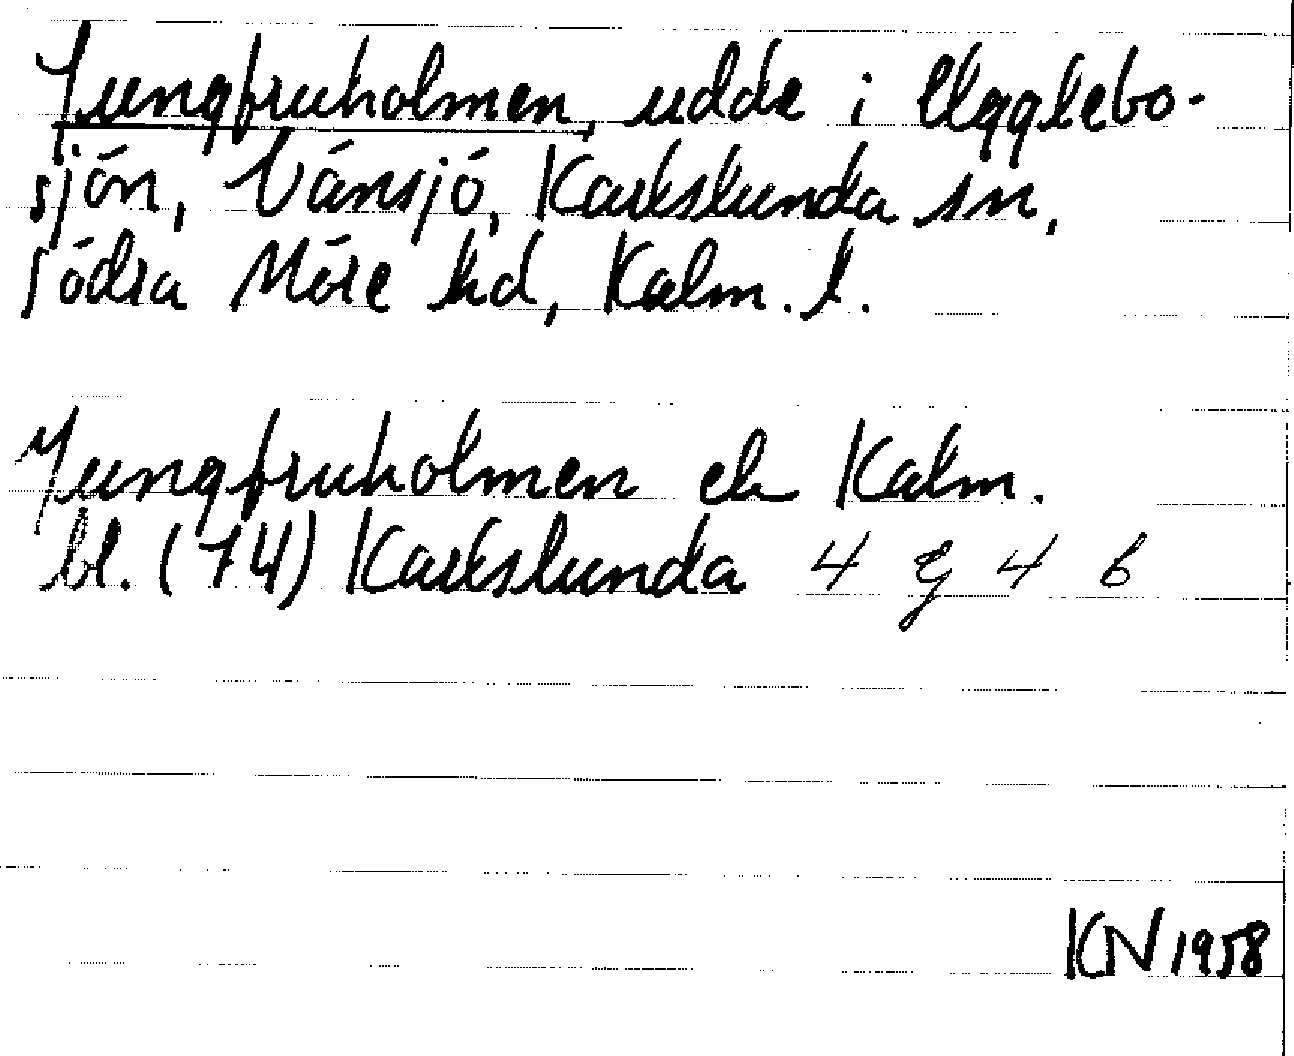 Jungfruholmen, udde i Ugglebo-
sjön, Vånsjö, Karlslunda sn,
Södra Möre hd, Kalm. l.
Jungfruholmen ek Kalm.
bl. (74) Karlslunda 4 g 4 b
KN 1958